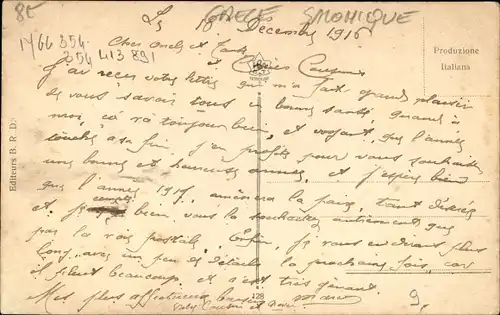 8E
GRECE SALONIQUE
1466 354
354 413 891
Le 18 Décembre 1916
Chers Oncle et Tante
et Chères Cousines
Produzione
Italiana
J'ai reçu votre lettre qui m'a fait grand plaisir
de vous savoir tous en bonne santé, quand à
moi, ça va toujours bien, et voyant que l'année
touche à sa fin j'en profite pour vous souhaiter
une bonne et heureuse année, et j'espère bien
que l'année 1917 amènera la paix, tant désirée
et je compte bien vous la souhaiter autrement que
par la voie postale. Enfin, je vous en dirai plus
long avec un peu de détails la prochaine fois, car
il pleut beaucoup et c'est très gênant
Mes plus affectueux baisers
Marc
Editeurs B. R. D.
128
9.